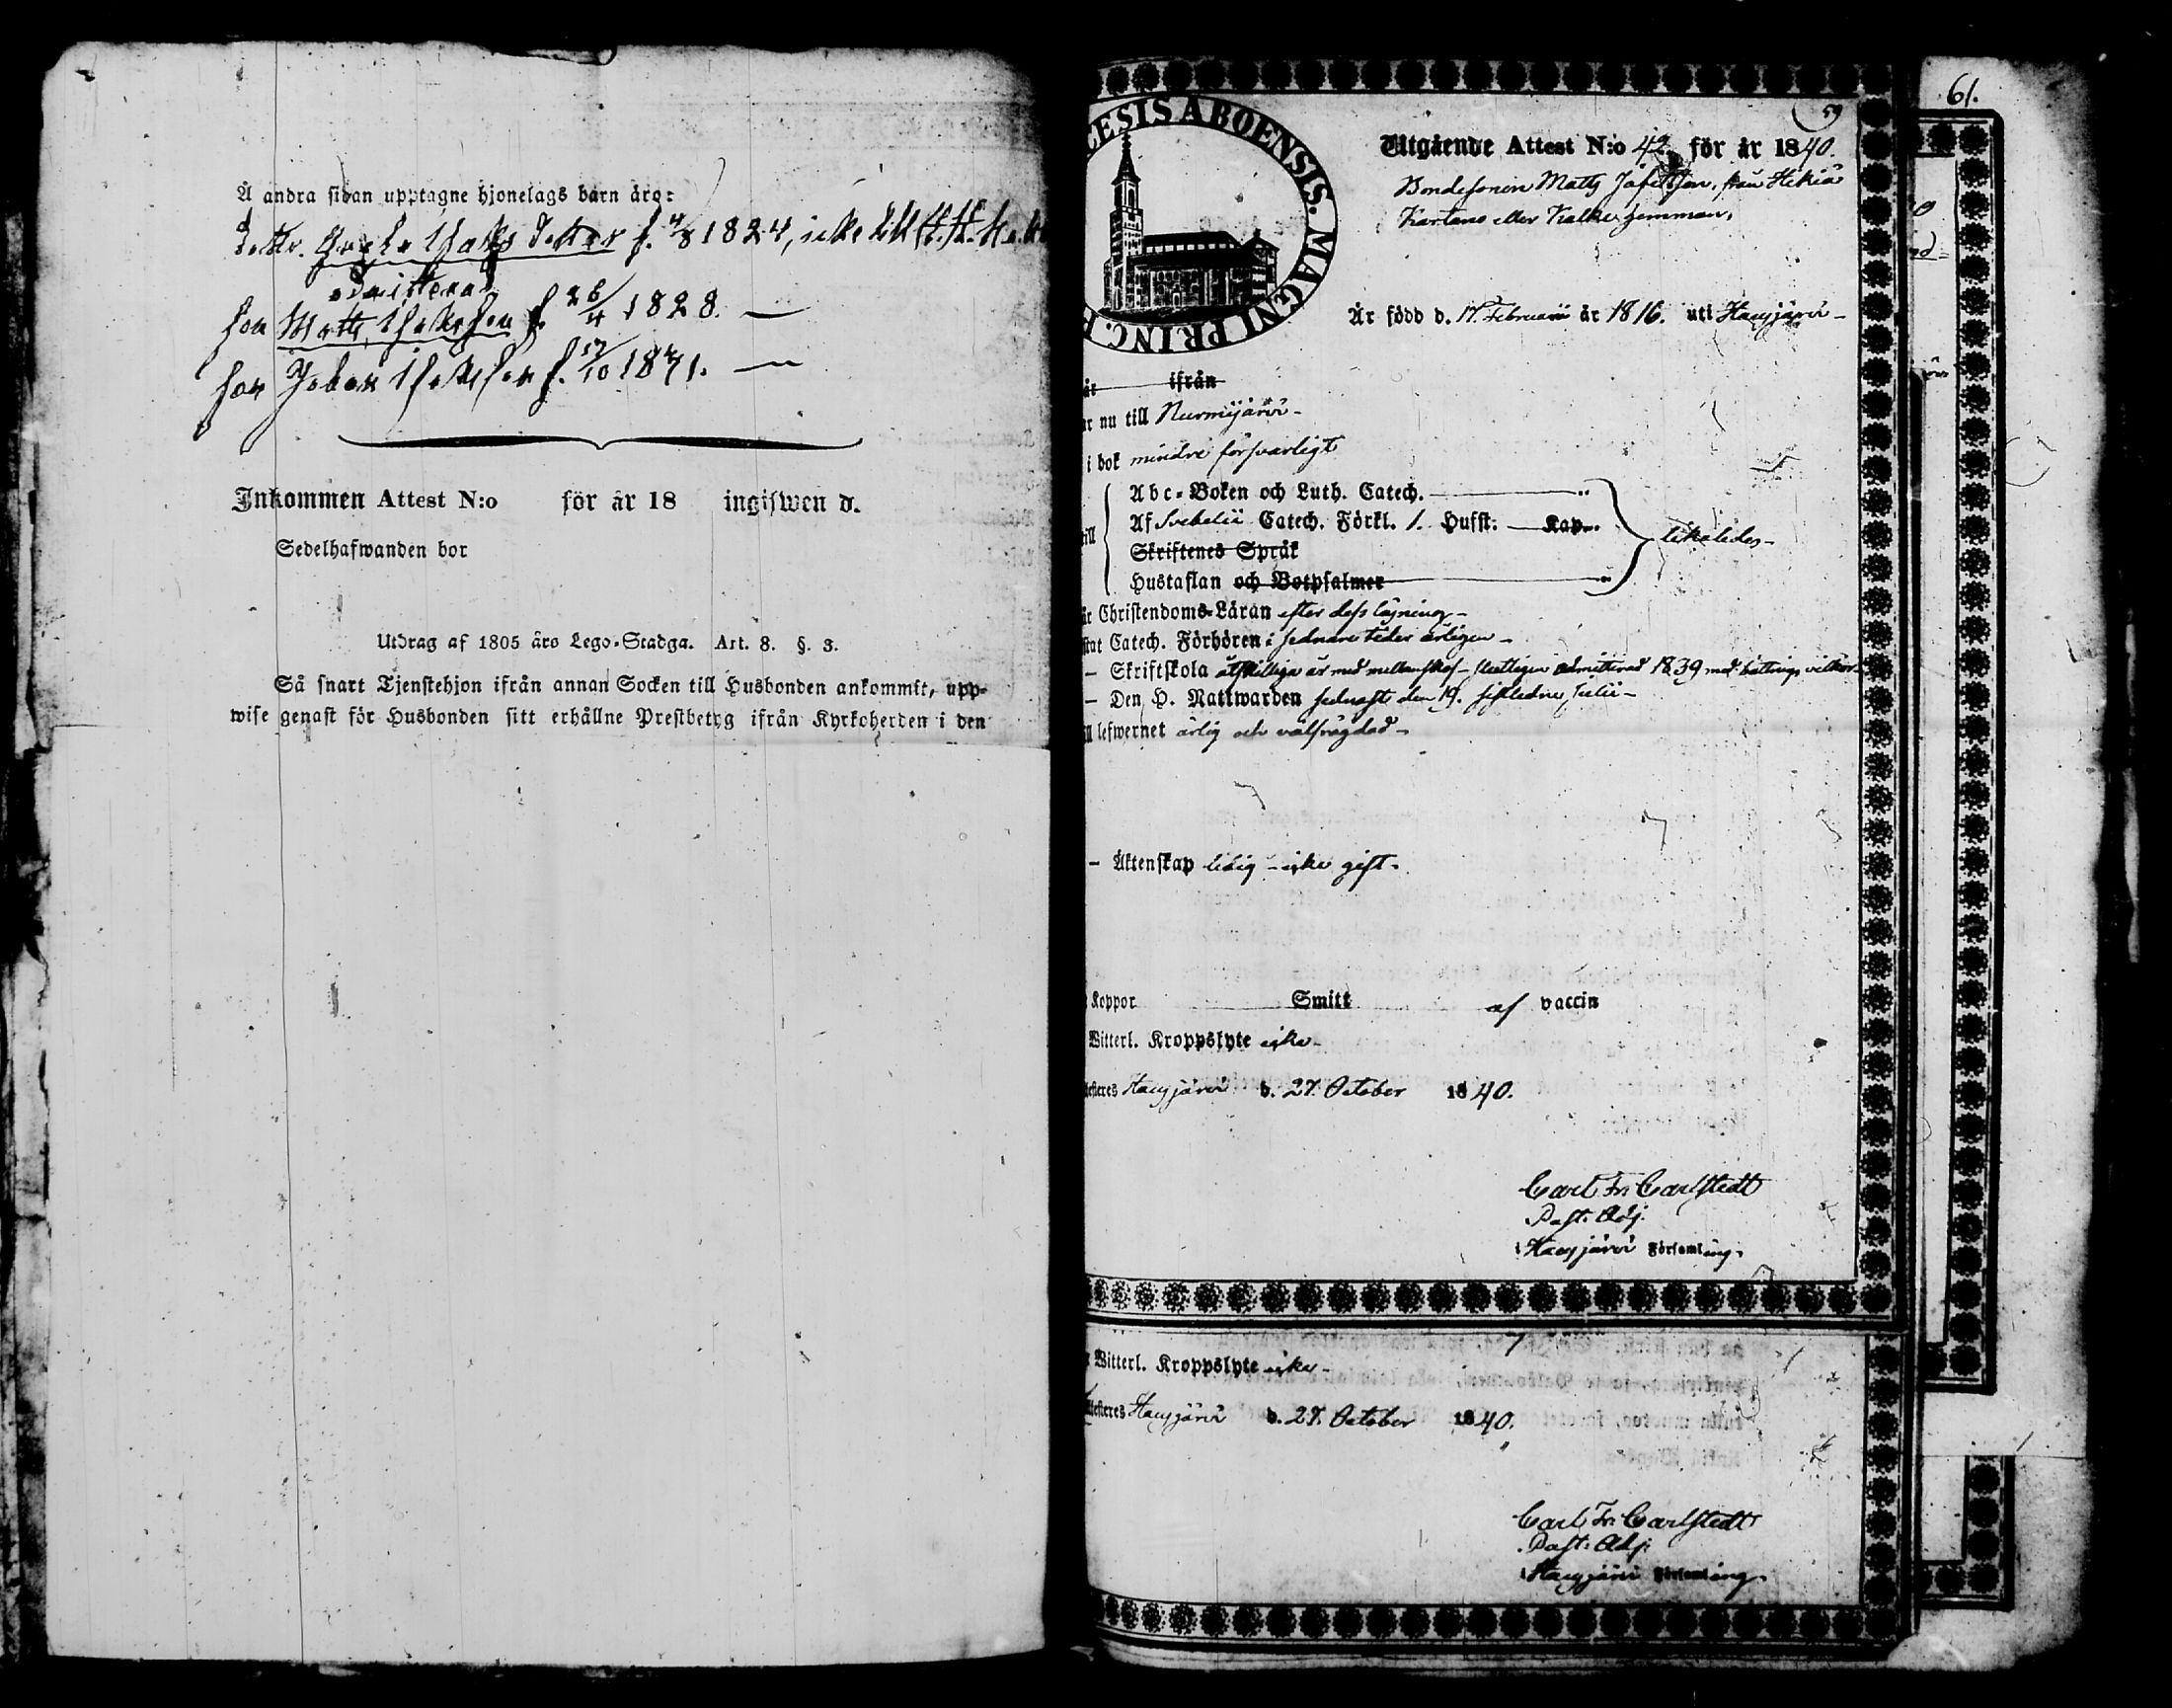 Å andra sidan upptagne hjonelags barn äro:
dottr. Isaks dotter f. 4/8 1824, icke till H. H.
admitterad
son Matts Isaksson f. 26/4 1828. —
son Johan Isaksson f. 17/10 1831. —
Inkommen Attest N:o för år 18 ingifwen d.
Sedelhafwanden bor
Utdrag af 1805 års Lego-Stadga. Art. 8. §. 3.
Så snart Tjenstehjon ifrån annan Socken till Husbonden ankommit, upp-
wise genast för Husbonden sitt erhållne Prestbetyg ifrån Kyrkoherden i den
59
CESIS ABOENSIS. MAGNI PRINC.
Utgående Attest N:o 42. för år 1840.
Bondesonen Matts Jafetsson, från Hikiä
eller hemman,
Är född d. 17. Februarii år 1816. uti Hausjärvi –
år ifrån
ar nu till Nurmijärvi –
i bok mindre försvarligt
till
Abc-Boken och Luth. Catech. — "
Af Svebelii Catech. Förkl. 1. Hufst: — Kap.
Skriftenes Språk
Hustaflan och Botpsalmer — "
likaledes –
är Christendoms-Läran efter dess läsning –
stat Catech. Förhören i sednare tider årligen –
– Skriftskola åtskilliga år med mellanskof – slutligen admitterad 1839 med bättrings vilkor –
– Den H. Nattwarden sednast den 19. sistledne Julii –
ll lefwernet ärlig och välfrägdad –
– Äktenskap ledig – icke gift –
Koppor Smitt af vaccin
Witterl. Kroppslyte icke –
Attesteres Hausjärvi d. 27. October 1840.
Carl Fr. Carlstedt
Past. Adj.
i Hausjärvi Församling.
Witterl. Kroppslyte icke –
Attesteres Hausjärvi d. 27. October 1840.
Carl Fr. Carlstedt
Past. Adj.
i Hausjärvi Församling.
61.